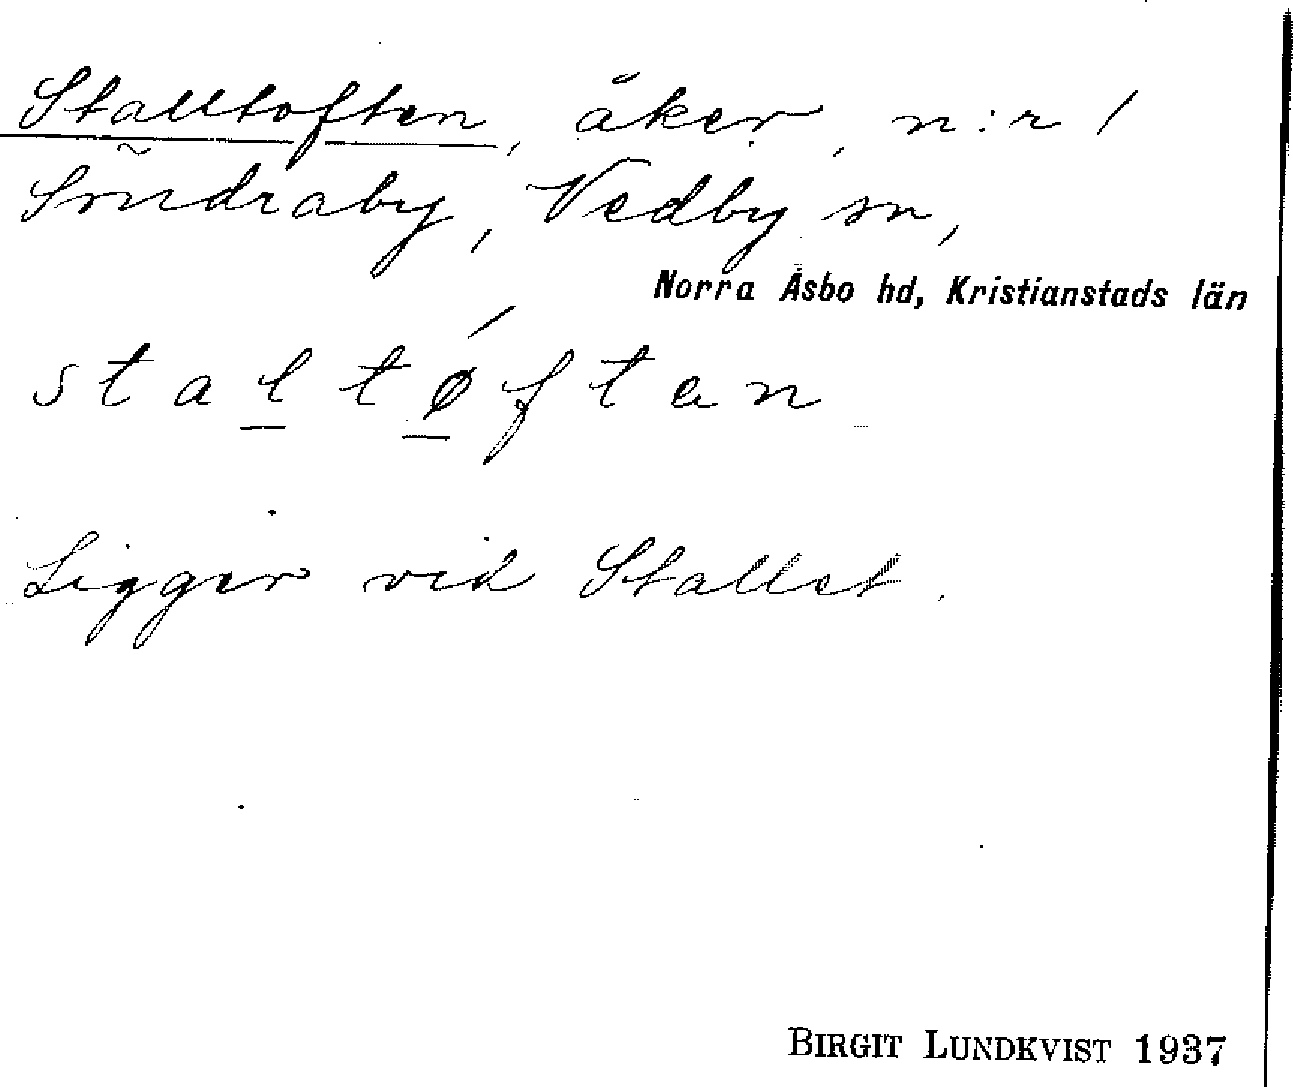 Stalltoften, åker, n:r 1
Söndraby, Vedby sn,
Norra Åsbo hd, Kristianstads län
staltǿften
Ligger vid Stallet.
BIRGIT LUNDKVIST 1937